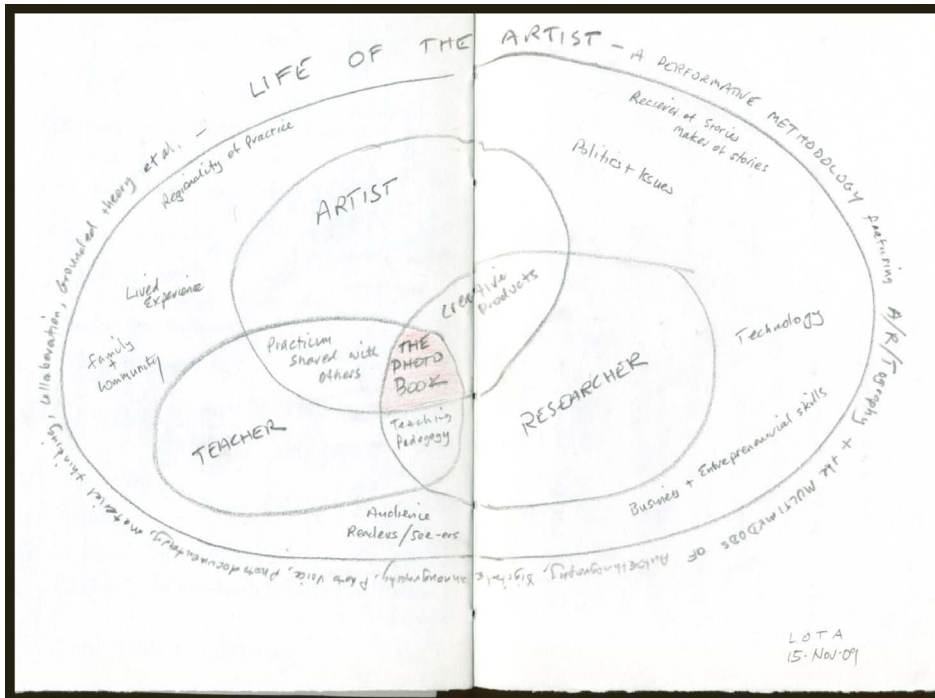 LIFE OF THE ARTIST - A PERFORMATIVE METHODOLOGY featuring A/R/Tography + the MULTIMEDODS OF Autoethnography, Digital ethnography, Photo Voice, Photodocumentary, material thinking, collaboration, Grounded theory et al. -
Regionality of Practice
Reciever of Stories
maker of stories
Politics + Issues
ARTIST
Lived
Experience
Family
+
Community
Creative
Products
Technology
Practicum
shared with
others
THE
PHOTO
BOOK
RESEARCHER
TEACHER
Teaching
Pedagogy
Business + Entrepreneurial skills
Audience
Readers/See-ers
LOTA
15.Nov.09